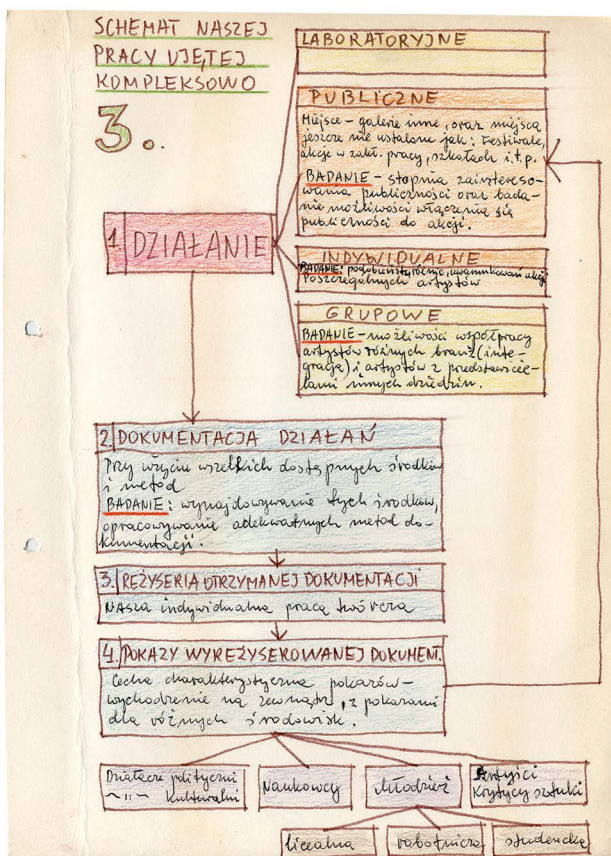 SCHEMAT NASZEJ
PRACY UJĘTEJ
KOMPLEKSOWO
3.
LABORATORYJNE
PUBLICZNE
Miejsce – galerie inne, oraz miejsca
jeszcze nie ustalone jak: Festiwale,
akcje w zakł. pracy, szkołach i.t.p.
BADANIE – stopnia zaintereso-
wania publiczności oraz bada-
nie możliwości włączenia się
publiczności do akcji.
1. DZIAŁANIE
INDYWIDUALNE
BADANIE: podobieństw, różnic, uwarunkowań akcji
Poszczególnych artystów
GRUPOWE
BADANIE – możliwości współpracy
artystów różnych branż (inte-
gracja) i artystów z przedstawicie-
lami innych dziedzin.
2. DOKUMENTACJA DZIAŁAŃ
Przy użyciu wszelkich dostępnych środków
i metod
BADANIE: wynajdowywanie tych środków,
opracowywanie adekwatnych metod do-
kumentacji.
3. REŻYSERIA OTRZYMANEJ DOKUMENTACJI
Nasza indywidualna praca twórcza
4. POKAZY WYREŻYSEROWANEJ DOKUMENT.
Cecha charakterystyczna pokazów –
wychodzenie na zewnątrz, z pokazami
dla różnych środowisk.
Działacze polityczni
~ " ~ kulturalni
Naukowcy
Młodzież
Artyści
Krytycy sztuki
licealna
robotnicza
studencka